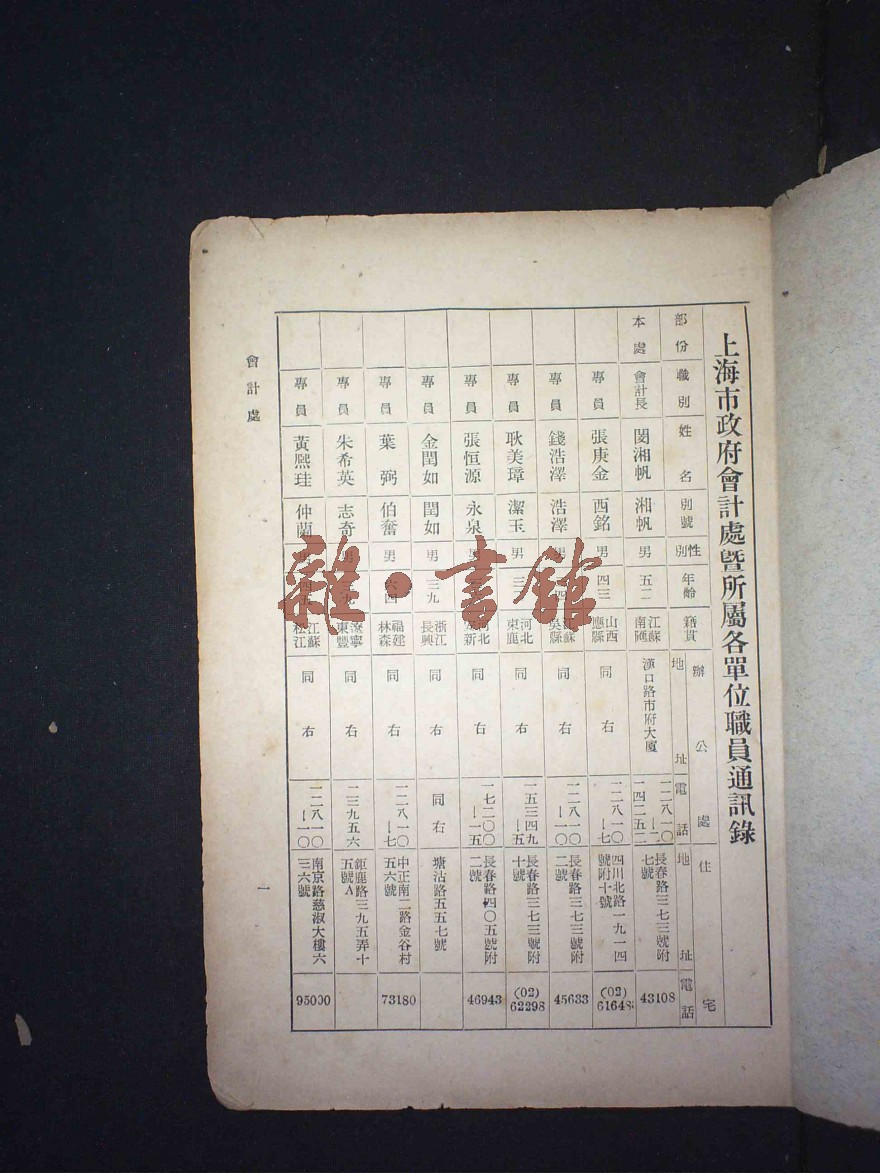 上海市政府會計處暨所屬各單位職員通訊錄
部份 職別 姓名 別號 性別 年齡 籍貫 辦公處 地址 電話 住宅 地址 電話
本處 會計長 閔湘帆 湘帆 男 五二 江蘇南匯 漢口路市府大廈 一二八一〇 一四二五二 長春路三七三號附七號 43108
專員 張庚金 西銘 男 四三 山西應縣 同右 一二八一〇—七 四川北路一九一四號附十號 (02)
專員 錢浩澤 浩澤 江蘇吳縣 同右 一二八一〇—一〇 長春路三七三號附二號 45633
專員 耿美璋 潔玉 男 河北束鹿 同右 一五三四九—五 長春路三七三號附十號 (02) 62298
專員 張恒源 永泉 河北 同右 一七二〇〇—一五 長春路四〇五號附二號 46943
專員 金閏如 閏如 男 三九 浙江長興 同右 同右 塘沽路五五七號
專員 葉弼 伯奮 男 福建林森 同右 一二八一〇—七 中正南二路金谷村五六號 73180
專員 朱希英 志奇 遼寧東豐 同右 一三九五六 鉅鹿路三九五弄十五號A
專員 黃熙珪 仲蘭 江蘇松江 同右 一二八一〇—一〇 南京路慈淑大樓六三六號 95000
會計處
一
雜·書館